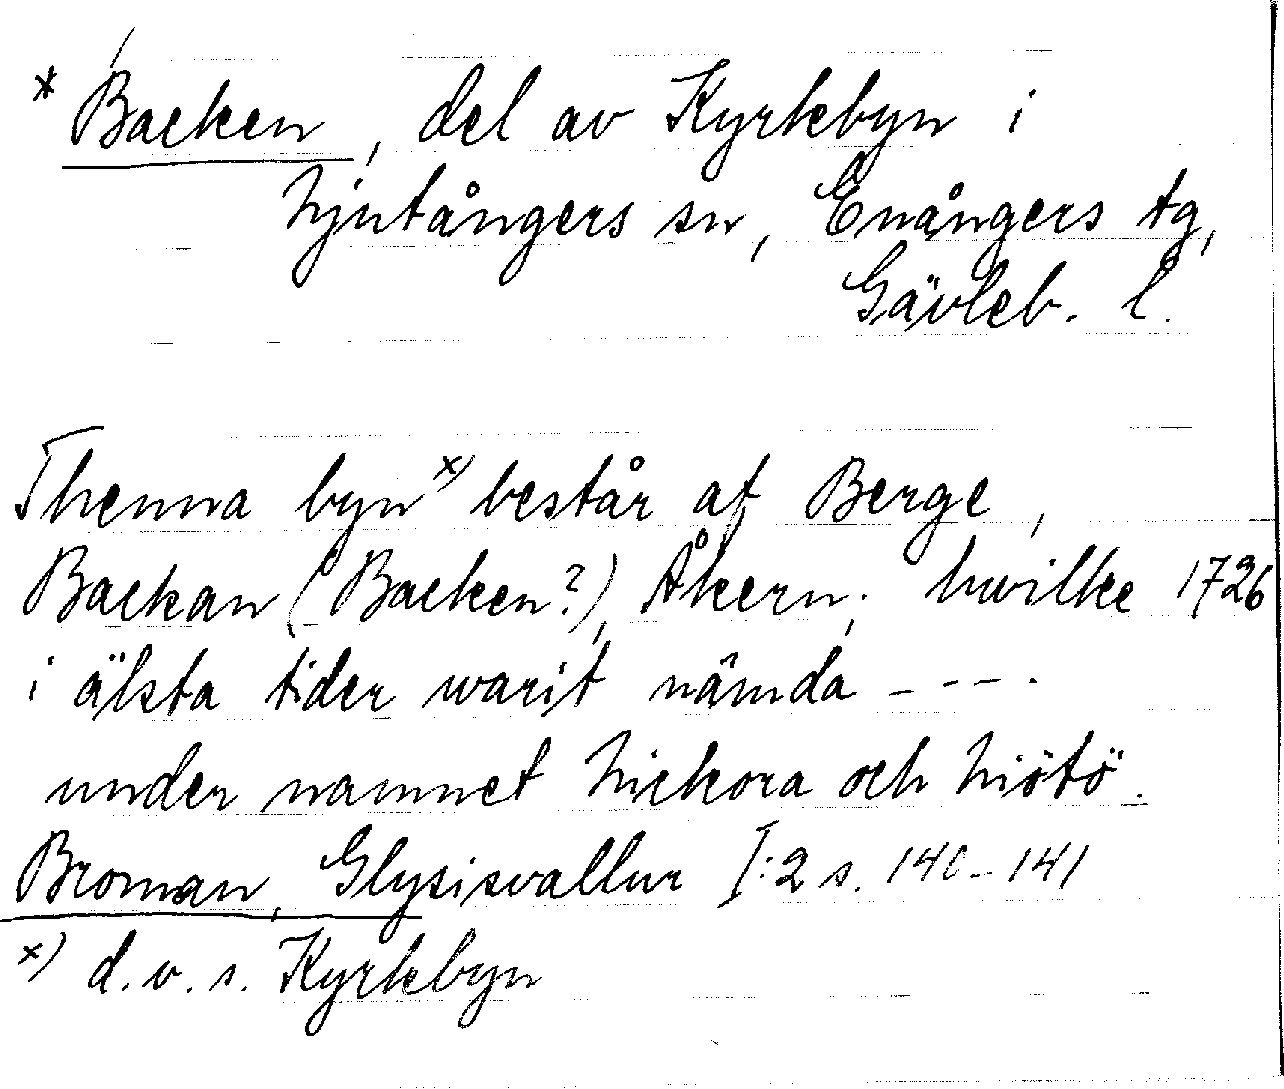 * Backen, del av Kyrkbyn i
Njutångers sn, Enångers tg,
Gävleb. l.
Thenna byn x) består af Berge,
Backan (Backen?), Åkern; hwilke 1726
i älsta tider warit nämda - - - .
under namnet Nickora och Niötö.
Broman, Glysisvallur I:2 s. 140-141
x) d.v.s. Kyrkbyn